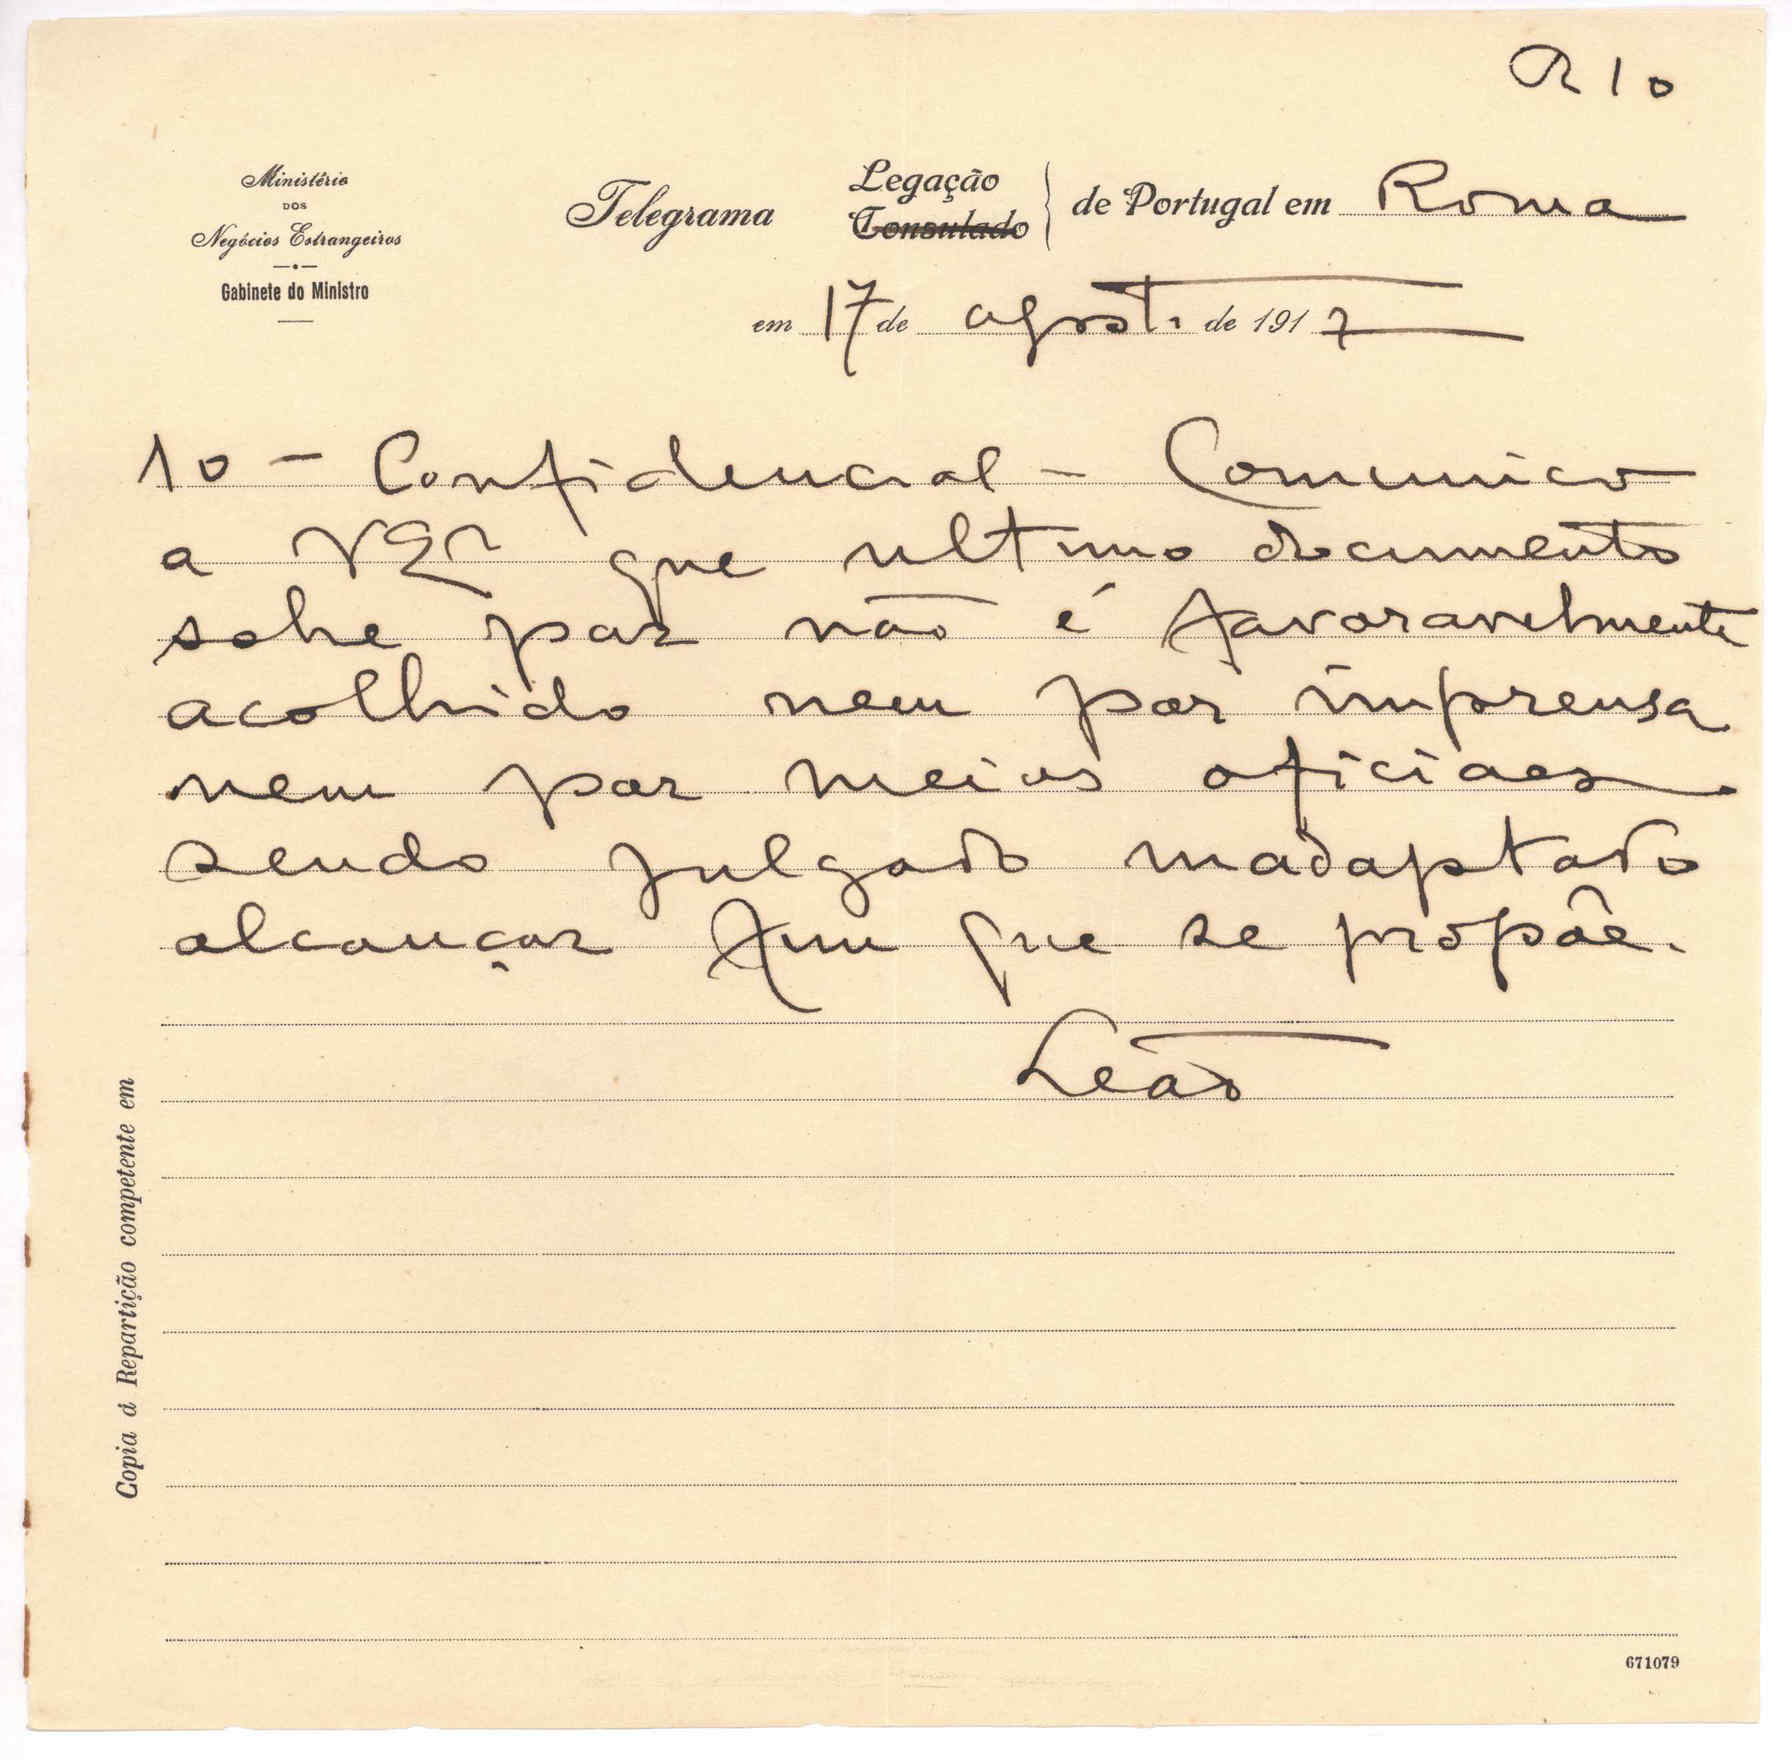 R 10
Ministério
DOS
Negócios Estrangeiros
Gabinete do Ministro
Telegrama
Legação
Consulado
de Portugal em Roma
em 17 de agosto de 1917
10 - Confidencial - Comunico
a V Ex que ultimo documento
sobre paz não é favoravelmente
acolhido nem por imprensa
nem por meios oficiaes
sendo julgado inadaptado
alcançar fim que se propõe.
Leão
Copia á Repartição competente em
671079